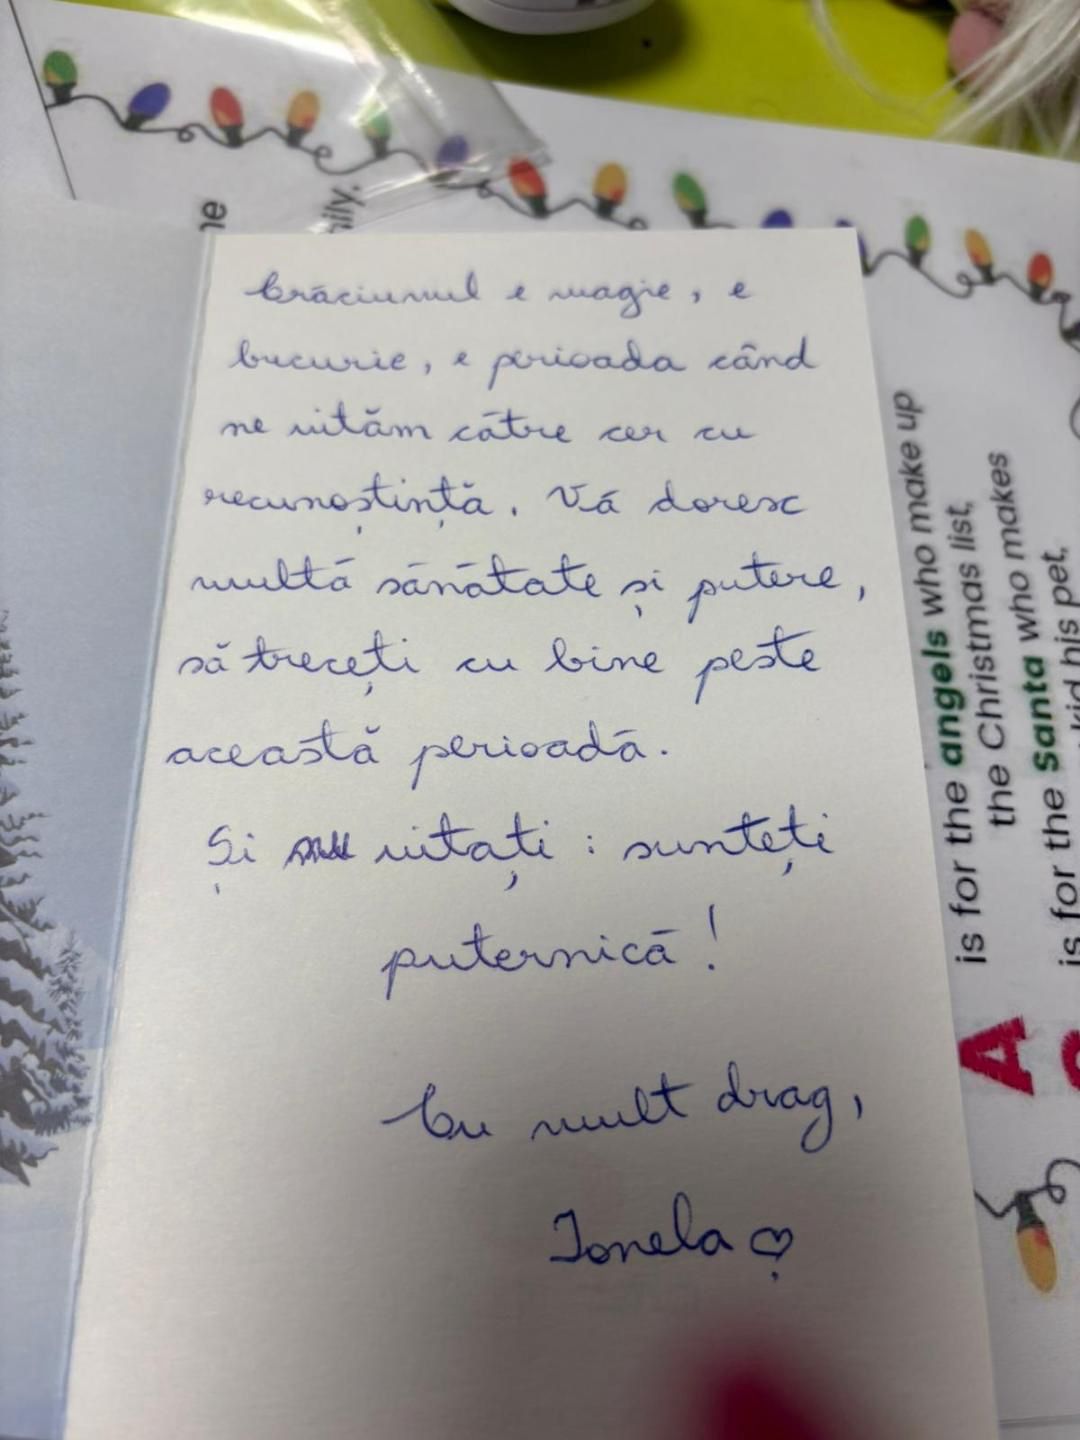 Crăciunul e magie, e
bucurie, e perioada când
ne uităm către cer cu
recunoștință. Vă doresc
multă sănătate și putere,
să treceți cu bine peste
această perioadă.
Și nu uitați: sunteți
puternică!
Cu mult drag,
Ionela ♡
is for the angels who make up
the Christmas list,
the Santa who makes
A
is for the
kid his pet,